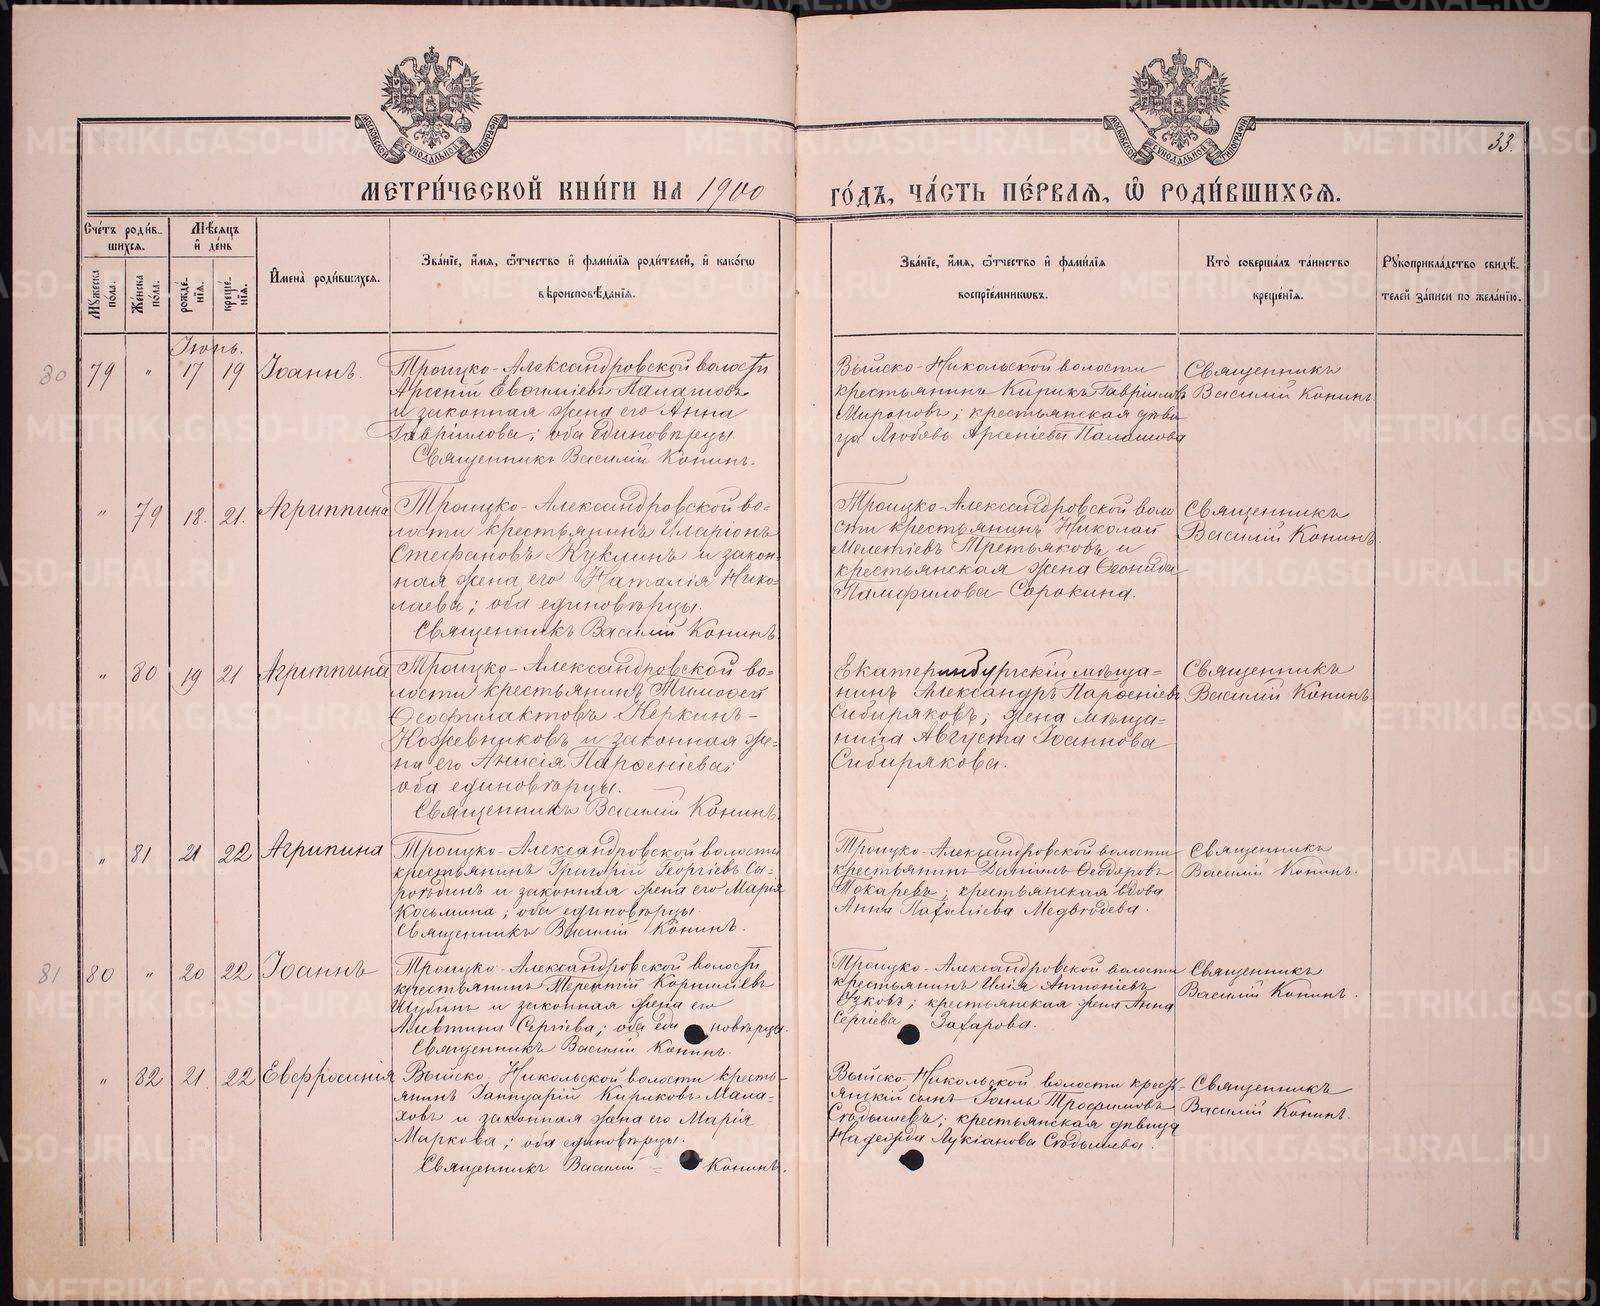 МОСКОВСКОЙ СѴНОДАЛЬНОЙ ТИПОГРАФІИ
МОСКОВСКОЙ СѴНОДАЛЬНОЙ ТИПОГРАФІИ
33.
МЕТРИ́ЧЕСКОЙ КНИ́ГИ НА 1900 ГО́ДЪ, ЧА́СТЬ ПЕ́РВАЯ, Ѽ РОДИ́ВШИХСЯ.
Сче́тъ роди́в-
шихся.
Мꙋ́жеска по́ла.
Же́нска по́ла.
Мѣ́сяцъ
и҆ де́нь
рожде́-
нїя.
креще́-
нїя.
И҆мена̀ роди́вшихся.
Зва́нїе, и҆́мя, ѻ҆́тчество и҆ фами́лїя роди́телей, и҆ како́гѡ
вѣроисповѣ́данїя.
Зва́нїе, и҆́мя, ѻ҆́тчество и҆ фами́лїя
воспрїе́мникѡвъ.
Кто̀ соверша́лъ та́инство
креще́нїя.
Рꙋкоприкла́дство свидѣ́-
телей за́писи по жела́нїю.
Іюнь.
80
79 " 17 19 Іоаннъ.
Троицко-Александровской волости
Арсеній Евѳиміевъ Палашовъ
и законная жена его Анна
Гавріилова; оба единовѣрцы.
Священникъ Василій Конинъ.
Выйско-Никольской волости
крестьянинъ Кирикъ Гавріиловъ
Мироновъ; крестьянская дѣви
ца Любовь Арсеніева Палашова
Священникъ
Василій Конинъ
" 79 18. 21. Агриппина
Троицко-Александровской во-
лости крестьянинъ Иларіонъ
Стефановъ Куклинъ и закон-
ная жена его Наталія Нико-
лаева; оба единовѣрцы.
Священникъ Василій Конинъ.
Троицко-Александровской воло
сти крестьянинъ Николай
Мелетіевъ Третьяковъ и
крестьянская жена Леонида
Памфилова Сорокина.
Священникъ
Василій Конинъ
" 80 19 21 Агриппина
Троицко-Александровской во-
лости крестьянинъ Тимоѳей
Ѳеофилактовъ Керкинъ-
Кожевниковъ и законная же-
на его Анисія Парѳеніева;
оба единовѣрцы.
Священникъ Василій Конинъ.
Екатеринбургскій мѣща-
нинъ Александръ Парѳеніевъ
Сибиряковъ; жена мѣща-
нина Августа Іоаннова
Сибирякова.
Священникъ
Василій Конинъ
" 81 21 22 Агрипина
Троицко-Александровской волости
крестьянинъ Григорій Георгіевъ Сы-
роѣдинъ и законная жена его Марія
Косьмина; оба единовѣрцы.
Священникъ Василій Конинъ.
Троицко-Александровской волости
крестьянинъ Даніилъ Ѳеодоровъ
Токаревъ; крестьянская вдова
Анна Патапіева Медвѣдева.
Священникъ
Василій Конинъ.
81
80 " 20 22 Іоаннъ
Троицко-Александровской волости
крестьянинъ Терентій Корниліевъ
Шубинъ и законная жена его
Алевтина Сергіева; оба единовѣрцы.
Священникъ Василій Конинъ.
Троицко-Александровской волости
крестьянинъ Илія Антоніевъ
крестьянская жена Анна
Сергіева Захарова.
Священникъ
Василій Конинъ.
" 82 21. 22 Евфросинія
Выйско-Никольской волости кресть-
янинъ Іаннуарій Кириковъ Мала-
ховъ и законная жена его Марія
Маркова; оба единовѣрцы.
Священникъ Василій = Конинъ.
Выйско-Никольской волости кресть-
янскій сынъ Іоиль Трофимовъ
Сѣдышевъ; крестьянская дѣвица
Надежда Лукіанова Сѣдышева.
Священникъ
Василій Конинъ.
METRIKI.GASO-URAL.RU